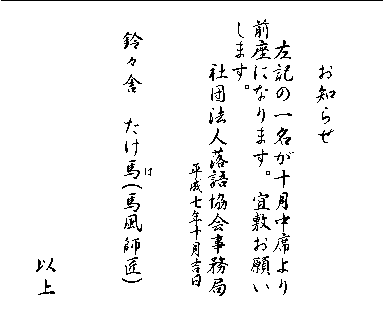 お知らせ
左記の一名が十月中席より
前座になります。宜敷お願い
します。
社団法人落語協会事務局
平成七年十月吉日
鈴々舎　たけ馬(馬風師匠)
は
以上